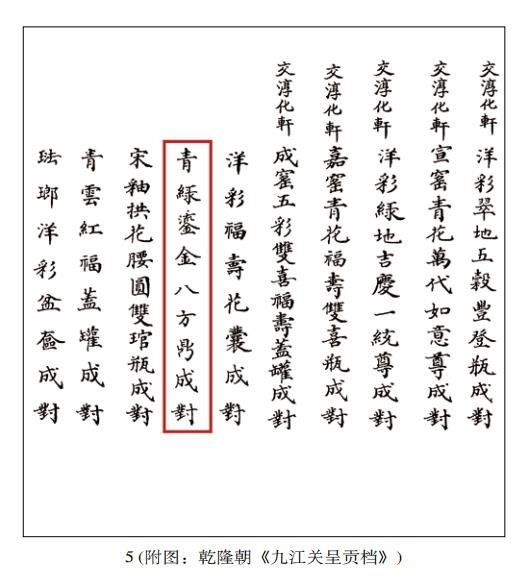 交淳化軒洋彩翠地五穀豐登瓶成對
交淳化軒宣窰青花萬代如意尊成對
交淳化軒洋彩綠地吉慶一統尊成對
交淳化軒嘉窰青花福壽雙喜瓶成對
交淳化軒成窰五彩雙喜福壽蓋罐成對
洋彩福壽花囊成對
青綠鎏金八方鼎成對
宋釉拱花腰圓雙琯瓶成對
青雲紅福蓋罐成對
琺瑯洋彩盆奩成對
5 (附图：乾隆朝《九江关呈贡档》)